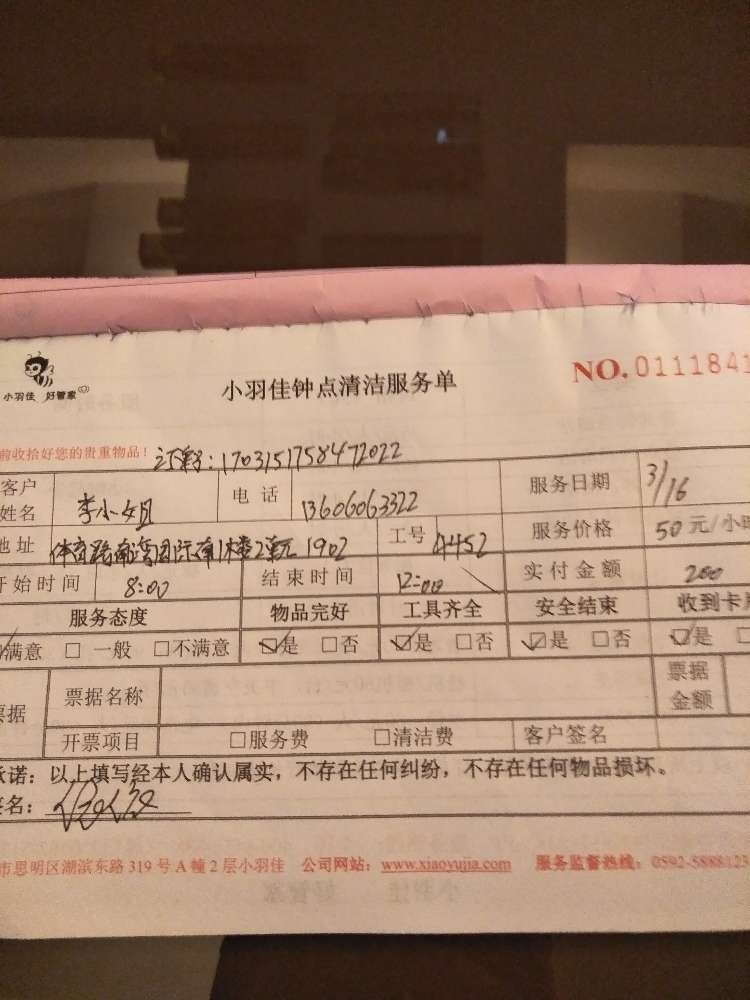 小羽佳 好管家
小羽佳钟点清洁服务单
NO.0111841
前收拾好您的贵重物品!
1703151758472022
客户姓名 李小姐 电话 13606063322 服务日期 3/16
地址 体育路 国际 1902 工号 4452 服务价格 50元/小时
开始时间 8:00 结束时间 12:00 实付金额 200
服务态度 物品完好 工具齐全 安全结束 收到卡
满意 □ 一般 □不满意 ☑是 □否 ☑是 □否 ☑是 □否 ☑是
票据名称 票据金额
开票项目 □服务费 □清洁费 客户签名
承诺：以上填写经本人确认属实，不存在任何纠纷，不存在任何物品损坏。
签名：
市思明区湖滨东路319号A幢2层小羽佳 公司网站：www.xiaoyujia.com 服务监督热线：0592-5888123